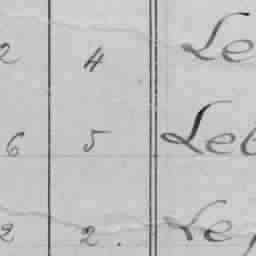 2 4 Le
6 5 Leb
2 2. Le